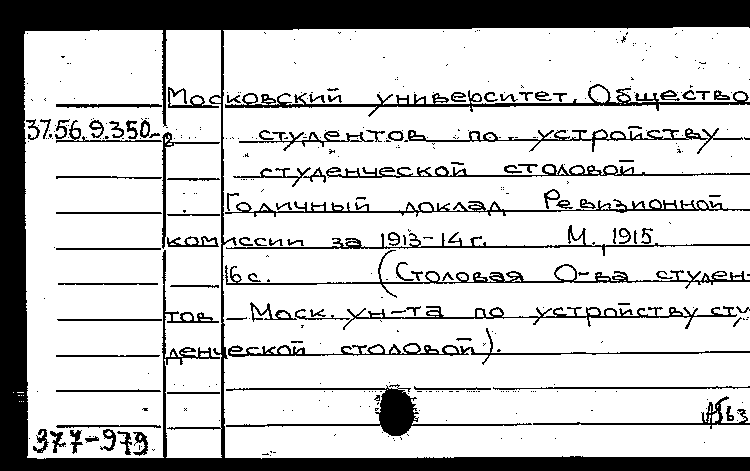 Московский университет. Общество
37.56.9.350-2 студентов по устройству
студенческой столовой.
Годичный доклад Ревизионной
комиссии за 1913-14 г. М., 1915.
16 с. (Столовая О-ва студен-
тов Моск. ун-та по устройству сту
денческой столовой).
377-979